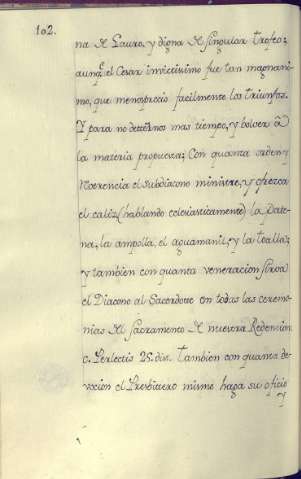 102.
na de Lauro, y digna de singular trofeo;
aunq̃ el Cesar invictissimo fue tan magnani-
mo, que menosprecio facilmente los triunfos.
Y para no detenernos mas tiempo, y bolver â
la materia propuesta; Con quanta orden y
Reverencia el subdiacono ministre, y ofrezca
el caliz (hablando eclesiasticamente) la Pate-
na, la ampolla, el aguamanil, y la toalla;
y tambien con quanta veneracion sirva
el Diacono al Sacerdote en todas las ceremo-
nias del Sacramento de nuestra Redencion
c. Perlectis 25. dis. tambien con quanta de-
vocion el Presbitero mismo haga su oficio
y